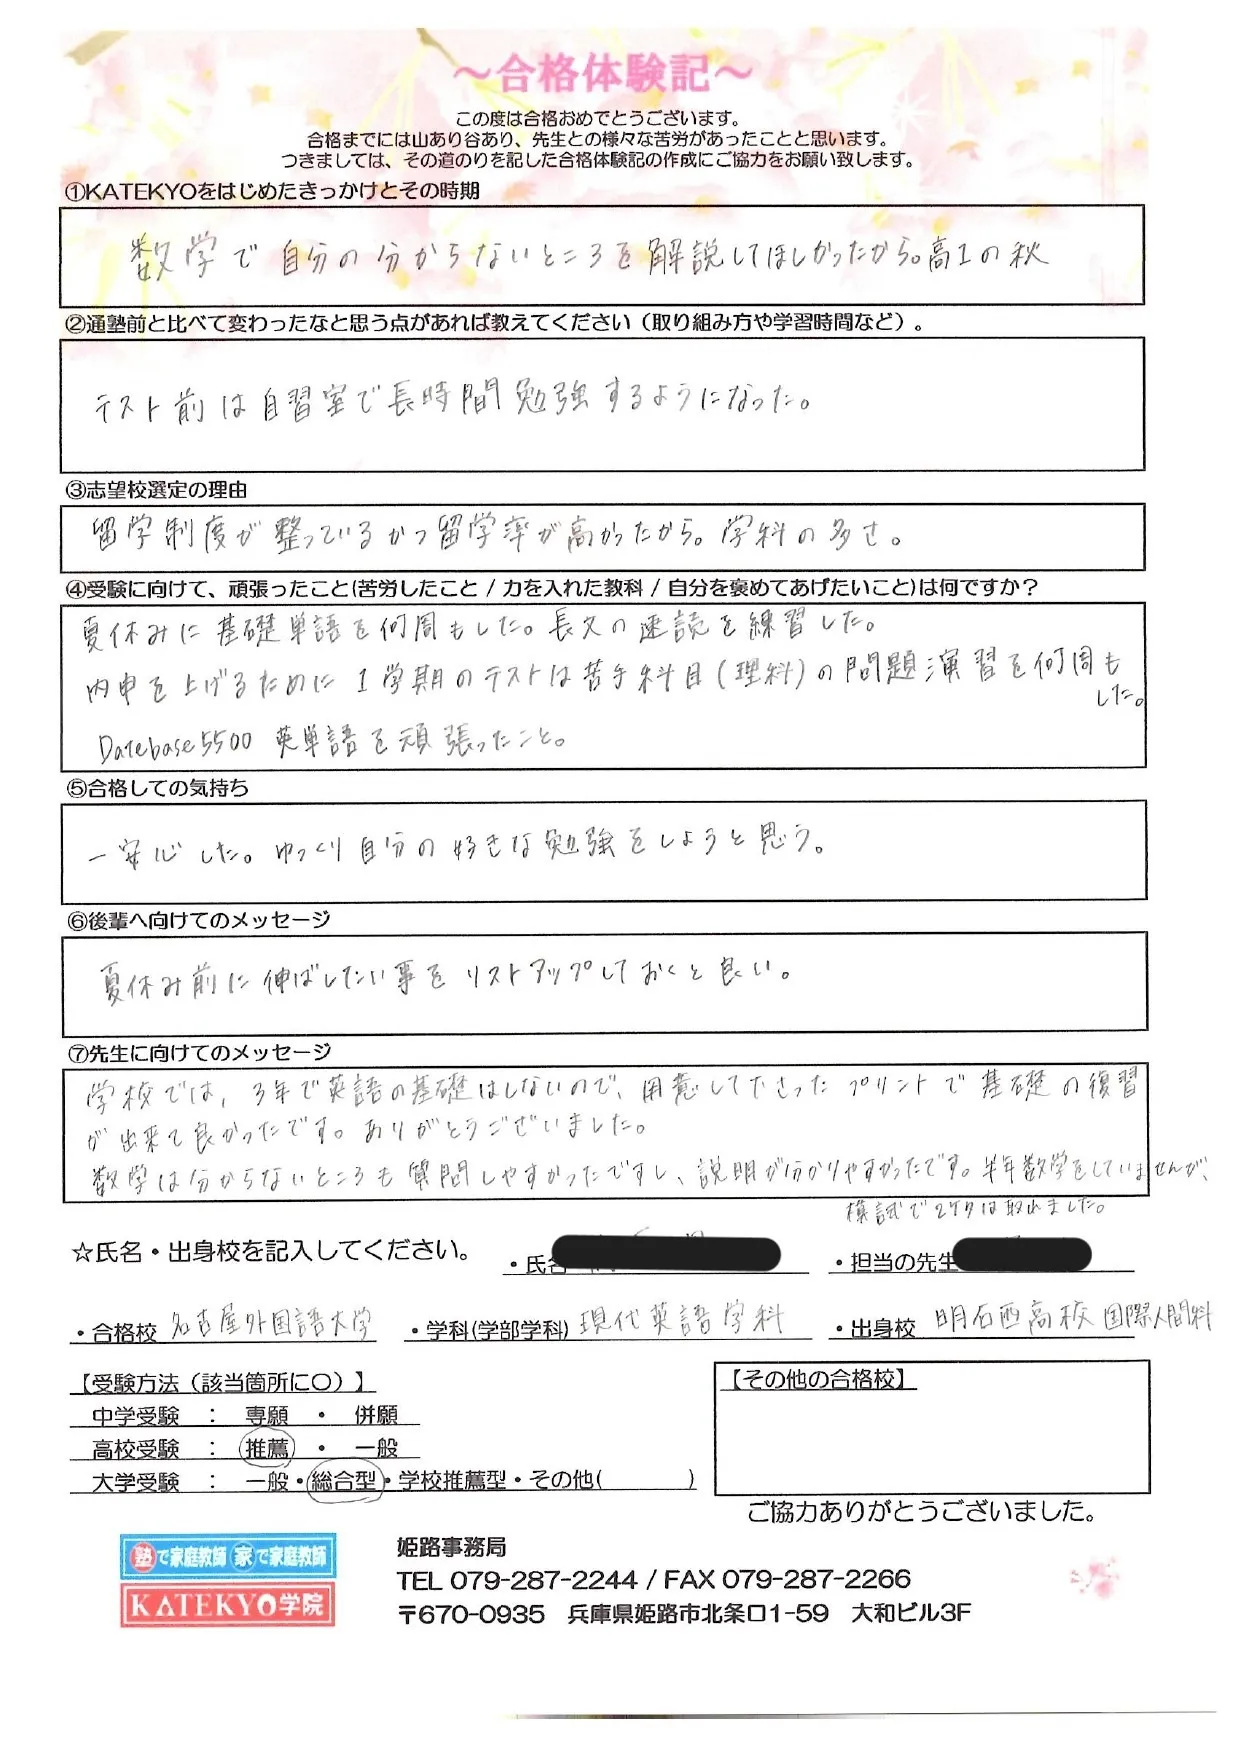 ～合格体験記～
この度は合格おめでとうございます。
合格までには山あり谷あり、先生との様々な苦労があったことと思います。
つきましては、その道のりを記した合格体験記の作成にご協力をお願い致します。
①KATEKYOをはじめたきっかけとその時期
数学で自分の分からないところを解説してほしかったから。高1の秋
②通塾前と比べて変わったなと思う点があれば教えてください（取り組み方や学習時間など）。
テスト前は自習室で長時間勉強するようになった。
③志望校選定の理由
留学制度が整っているかつ留学率が高かったから。学科の多さ。
④受験に向けて、頑張ったこと(苦労したこと / 力を入れた教科 / 自分を褒めてあげたいこと)は何ですか？
夏休みに基礎単語を何周もした。長文の速読を練習した。
内申を上げるために1学期のテストは苦手科目(理科)の問題演習を何周も
した。
Datebase5500 英単語を頑張ったこと。
⑤合格しての気持ち
一安心した。ゆっくり自分の好きな勉強をしようと思う。
⑥後輩へ向けてのメッセージ
夏休み前に伸ばしたい事をリストアップしておくと良い。
⑦先生に向けてのメッセージ
学校では、3年で英語の基礎はしないので、用意して下さったプリントで基礎の復習
が出来て良かったです。ありがとうございました。
数学は分からないところも質問しやすかったですし、説明が分かりやすかったです。半年数学をしていませんが、
模試で2ケタは取れました。
☆氏名・出身校を記入してください。
・氏名
・担当の先生
・合格校 名古屋外国語大学
・学科(学部学科) 現代英語学科
・出身校 明石西高校国際人間科
【受験方法（該当箇所に○）】
中学受験 ： 専願 ・ 併願
高校受験 ： 推薦 ・ 一般
大学受験 ： 一般・総合型・学校推薦型・その他( )
【その他の合格校】
ご協力ありがとうございました。
塾で家庭教師 家で家庭教師
KATEKYO学院
姫路事務局
TEL 079-287-2244 / FAX 079-287-2266
〒670-0935 兵庫県姫路市北条口1-59 大和ビル3F